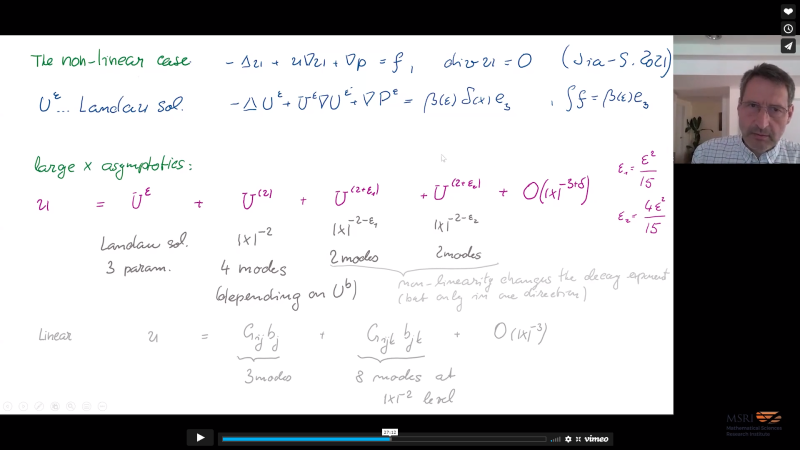 The non-linear case -Δu + u∇u + ∇p = f, div u = 0 (Jia-S. 2021)
U^ε ... Landau sol. -ΔU^ε + U^ε∇U^ε + ∇P^ε = β(ε) δ(x) e₃ , ∫f = β(ε)e₃
large x asymptotics:
u = U^ε + U^(2) + U^(2+ε₁) + U^(2+ε₂) + O(|x|^-3+δ)
ε₁ = ε²/15
ε₂ = 4ε²/15
Landau sol. |x|^-2 |x|^-2-ε₁ |x|^-2-ε₂
3 param. 4 modes 2 modes 2 modes
(depending on U^b) non-linearity changes the decay exponent
(but only in one direction)
Linear u = G_ij b_j + G_ijk b_jk + O(|x|^-3)
3 modes 8 modes at
|x|^-2 level
27:12
vimeo
MSRI
Mathematical Sciences
Research Institute